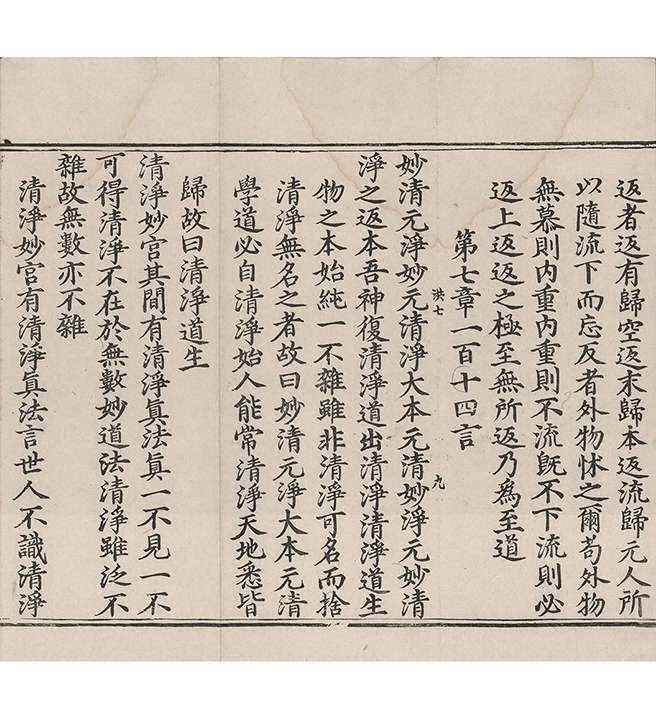 返者返有歸空返末歸本返流歸元人所
以隨流下而忘反者外物怵之爾苟外物
無慕則內重內重則不流旣不下流則必
返上返返之極至無所返乃爲至道
第七章一百十四言
洪七
九
妙清元淨妙元清淨大本元清妙淨元妙清
淨之返本吾神復清淨道出清淨清淨道生
物之本始純一不雜雖非清淨可名而捨
清淨無名之者故曰妙清元淨大本元清
學道必自清淨始人能常清淨天地悉皆
歸故曰清淨道生
清淨妙宮其間有清淨真法真一不見一不
可得清淨不在於無數妙道法清淨雖泛不
雜故無數亦不雜
清淨妙宮有清淨真法言世人不識清淨